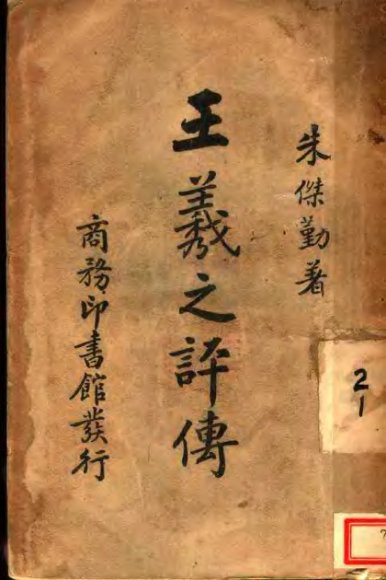 朱傑勤著
王羲之評傳
商務印書館發行
2
1